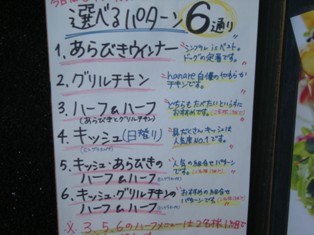 選べるパターン 6通り
1. あらびきウインナー
シンプル is ベスト。
ドッグの定番です。
2. グリルチキン
hanare自慢のやわらか
チキンです。
3. ハーフ&ハーフ
(あらびきとグリルチキン)
どちらもたべたいという方に
おすすめです。
4. キッシュ(日替り)
具だくさんキッシュは
人気度No.1です。
5. キッシュ・あらびきの
ハーフ&ハーフ
人気の組合せパターン
です。
6. キッシュ・グリルチキンの
ハーフ&ハーフ
おすすめの組合せ
パターンです。
※ 3, 5, 6のハーフメニューは2名様